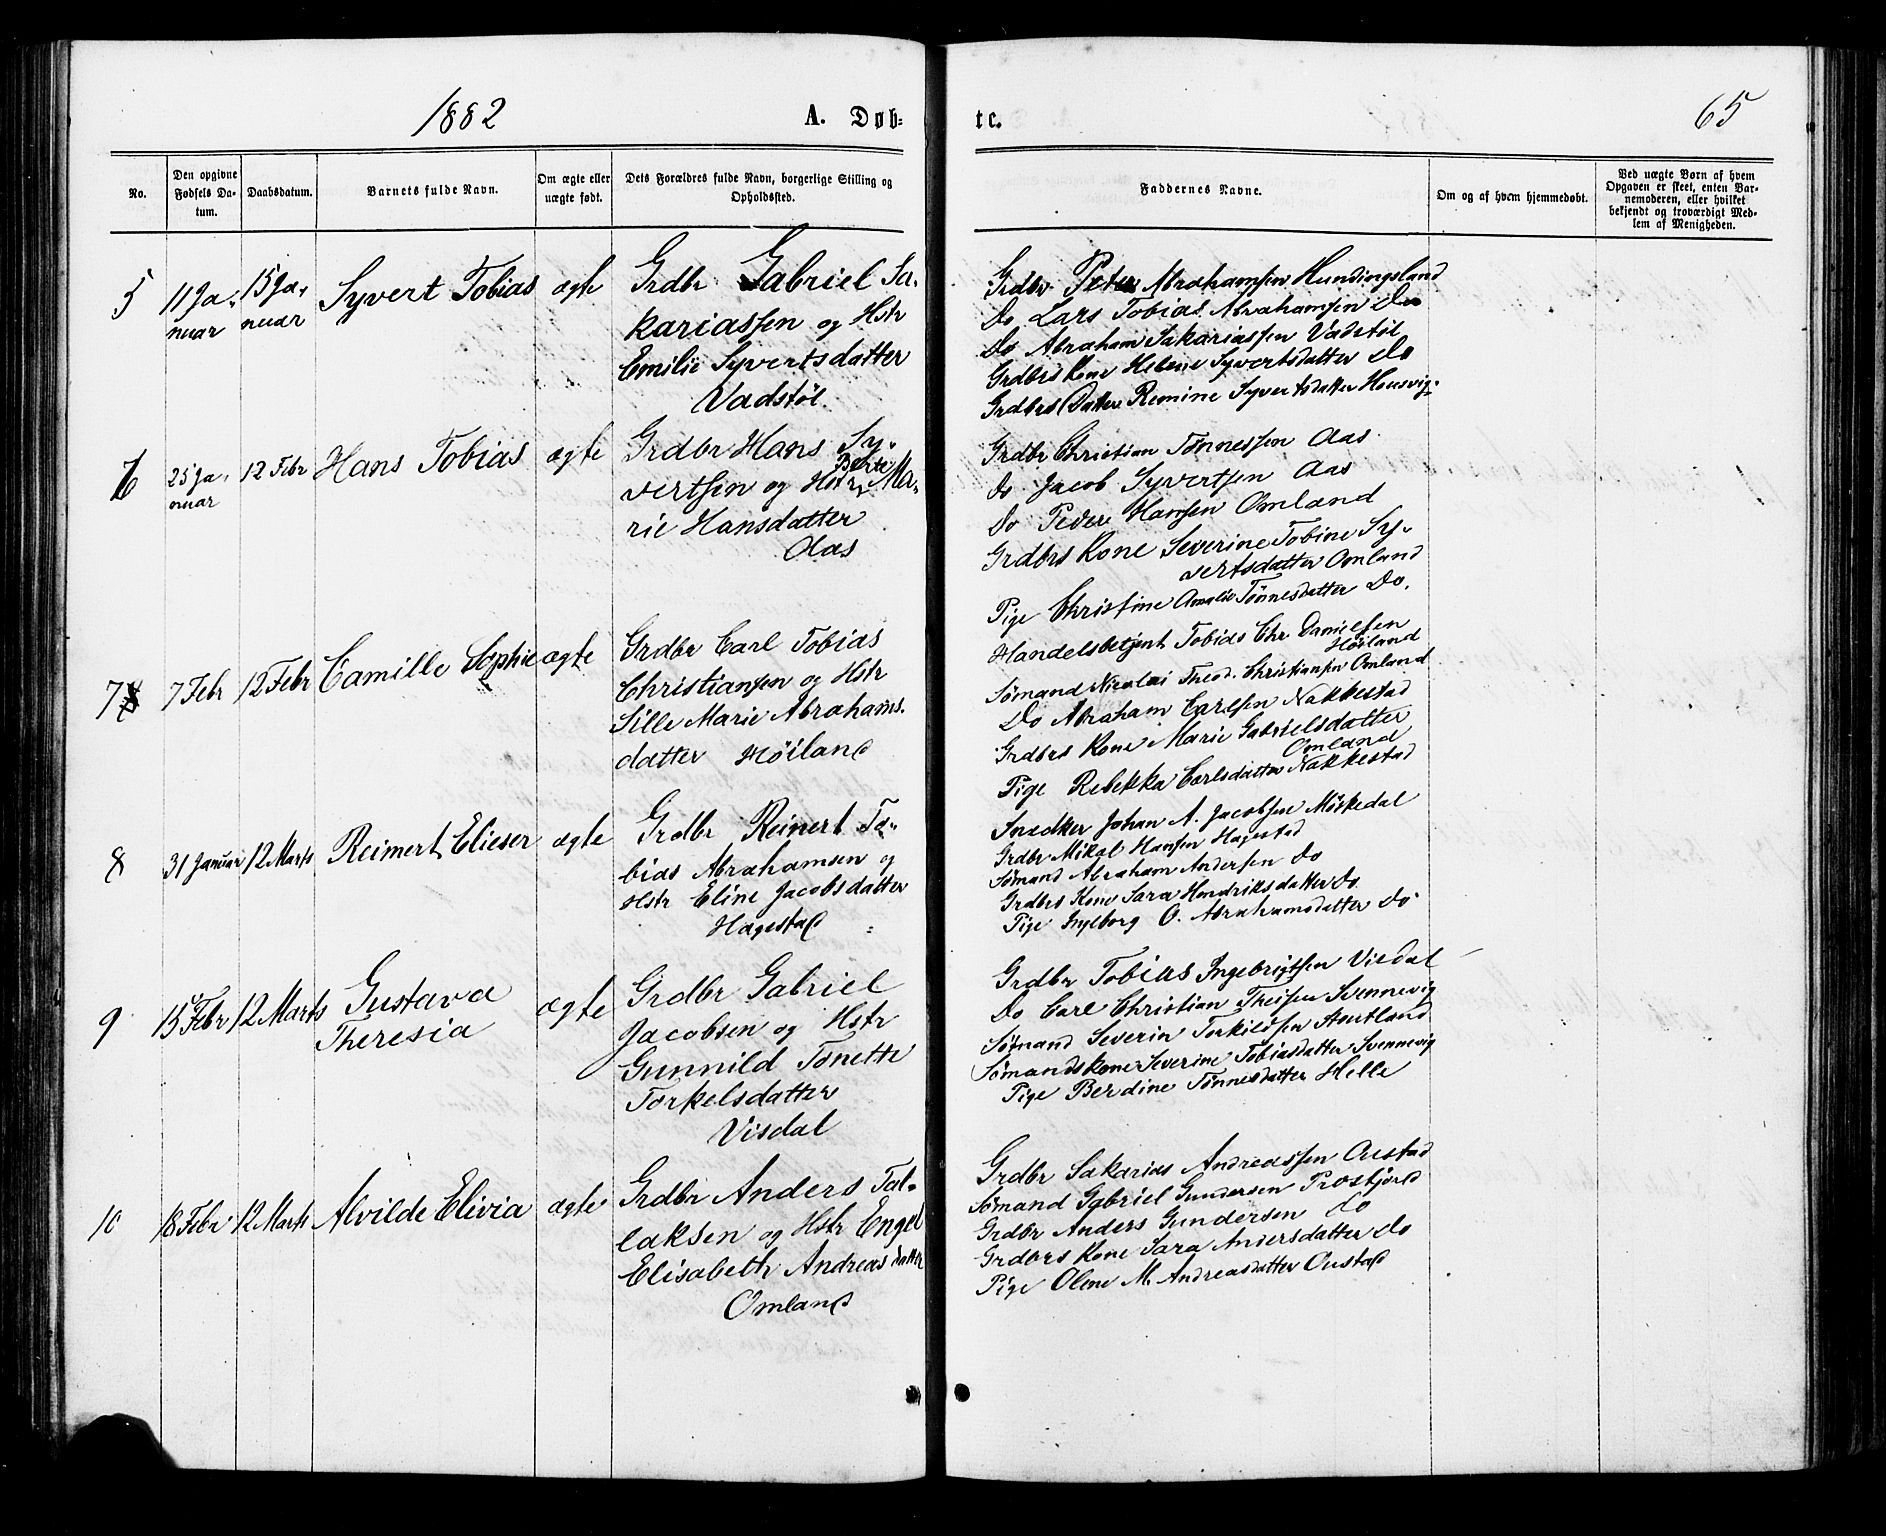 1882
A. Døb-
te.
65
No.
Den opgivne
Fødsels Da-
tum.
Daabsdatum.
Barnets fulde Navn.
Om ægte eller
uægte født.
Dets Forældres fulde Navn, borgerlige Stilling og
Opholdssted.
Faddernes Navne.
Om og af hvem hjemmedøbt.
Ved uægte Børn af hvem
Opgaven er skeet, enten Bar-
nemoderen, eller hvilket
bekjendt og troværdigt Med-
lem af Menigheden.
5
11 Ja-
nuar
15 Ja-
nuar
Syvert Tobias
ægte
Grdbr Gabriel Sa-
kariassen og Hstr
Emilie Syvertsdatter
Vadstøl
Grdbr Peter Abrahamsen Hundingsland
Do Lars Tobias Abrahamsen Do
Do Abraham Sakariassen Vadstøl
Grdbrs Kone Helene Syvertsdatter Do
Grdbrs Datter Remine Syvertsdatter Housvig
6
25 Ja-
nuar
12 Febr
Hans Tobias
ægte
Grdbr Hans Sy-
vertsen og Hstr Berte Ma-
rie Hansdatter
Aas
Grdbr Christian Tønnessen Aas
Do Jacob Syvertsen Aas
Do Peder Hansen Omland
Grdbrs Kone Severine Tobine Sy-
vertsdatter Omland
Pige Christine Amalie Tønnesdatter Do.
7
7 Febr
12 Febr
Camille Sophie
ægte
Grdbr Carl Tobias
Christiansen og Hstr
Sille Marie Abrahams-
datter Høiland
Handelsbetjent Tobias Chr. Danielsen
Høiland
Sømand Nicolai Theod. Christiansen Omland
Do Abraham Carlsen Nakkestad
Grdbrs Kone Marie Gabrielsdatter
Omland
Pige Rebekka Carlsdatter Nakkestad
8
31 Januar
12 Marts
Reimert Elieser
ægte
Grdbr Reinert To-
bias Abrahamsen og
Hstr Eline Jacobsdatter
Hagestad
Snedker Johan A. Jacobsen Mørkedal
Grdbr Mikal Hansen Hagestad
Sømand Abraham Andersen Do
Grdbrs Kone Sara Hendriksdatter Do
Pige Ingeborg O. Abrahamsdatter Do
9
15 Febr
12 Marts
Gustava
Theresia
ægte
Grdbr Gabriel
Jacobsen og Hstr
Gunnild Tonette
Torkelsdatter
Visdal
Grdbr Tobias Ingebrigtsen Visdal
Do Carl Christian Theisen Svennevig
Sømand Severin Torkildsen Stoutland
Sømandskone Severine Tobiasdatter Svennevig
Pige Berdine Tønnesdatter Helle
10
18 Febr
12 Marts
Alvilde Elivia
ægte
Grdbr Anders Tal-
laksen og Hstr Engel
Elisabeth Andreasdatter
Omland
Grdbr Sakarias Andreassen Oustad
Sømand Gabriel Gundersen Prostjord
Grdbr Anders Gundersen Do
Grdbrs Kone Sara Andersdatter Do
Pige Olene M. Andreasdatter Oustad